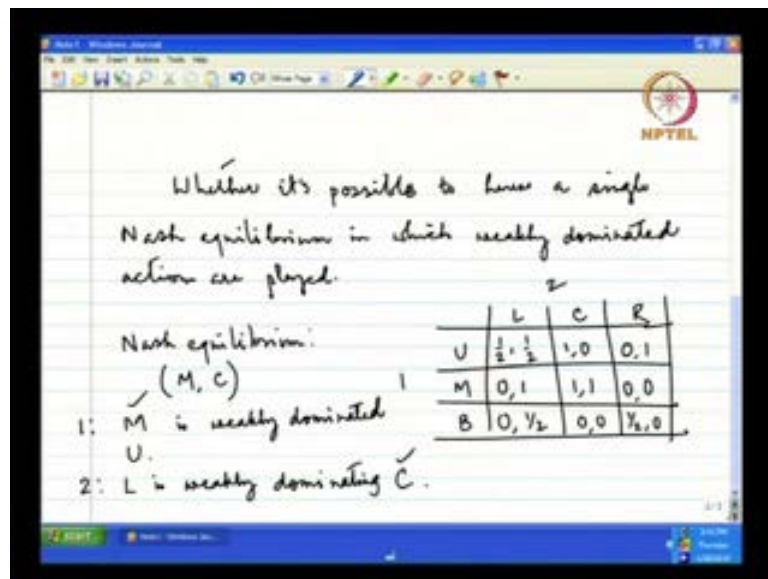 Note1 - Windows Journal
File Edit View Insert Actions Tools Help
NPTEL
Whether it's possible to have a single
Nash equilibrium in which weakly dominated
action are played.
Nash equilibrium:
(M, C)
1: M is weakly dominated
U.
2: L is weakly dominating C.
2
L C R
U 1/2, 1/2 1,0 0,1
1 M 0,1 1,1 0,0
B 0, 1/2 0,0 1/2,0
start